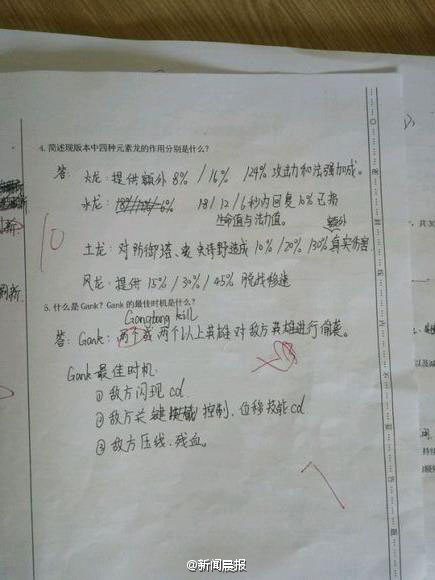 4. 简述现版本中四种元素龙的作用分别是什么?
答: 火龙: 提供额外 8% / 16% / 24% 攻击力和法强加成。
水龙: 18 / 12 / 6秒内回复 10% 已损
生命值与法力值。
额外
10
土龙: 对防御塔、史诗野造成 10% / 20% / 30% 真实伤害
风龙: 提供 15% / 30% / 45% 脱战移速
5. 什么是Gank? Gank的最佳时机是什么?
Gangbang kill
答: Gank: 两个或两个以上英雄对敌方英雄进行偷袭。
Gank最佳时机
① 敌方闪现cd.
② 敌方关键控制、位移技能cd
③ 敌方压线、残血。
7
@新闻晨报